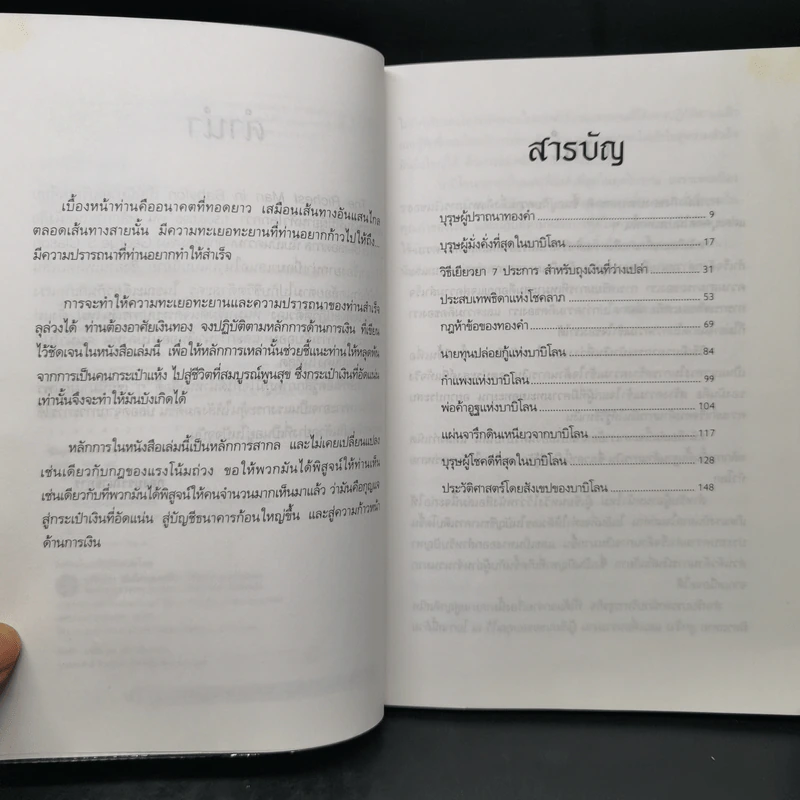 เบื้องหน้าท่านคืออนาคตที่ทอดยาว เสมือนเส้นทางอันแสนไกล
ตลอดเส้นทางสายนั้น มีความทะเยอทะยานที่ท่านอยากก้าวไปให้ถึง...
มีความปรารถนาที่ท่านอยากทำให้สำเร็จ
การจะทำให้ความทะเยอทะยานและความปรารถนาของท่านสำเร็จ
ลุล่วงได้ ท่านต้องอาศัยเงินทอง จงปฏิบัติตามหลักการด้านการเงิน ที่เขียน
ไว้ชัดเจนในหนังสือเล่มนี้ เพื่อให้หลักการเหล่านั้นช่วยชี้แนะท่านให้หลุดพ้น
จากการเป็นคนกระเป๋าแห้ง ไปสู่ชีวิตที่สมบูรณ์พูนสุข ซึ่งกระเป๋าเงินที่อัดแน่น
เท่านั้นจึงจะทำให้มันบังเกิดได้
หลักการในหนังสือเล่มนี้เป็นหลักการสากล และไม่เคยเปลี่ยนแปลง
เช่นเดียวกับกฎของแรงโน้มถ่วง ขอให้พวกมันได้พิสูจน์ให้ท่านเห็น
เช่นเดียวกับที่พวกมันได้พิสูจน์ให้คนจำนวนมากเห็นมาแล้ว ว่ามันคือกุญแจ
สู่กระเป๋าเงินที่อัดแน่น สู่บัญชีธนาคารก้อนใหญ่ขึ้น และสู่ความก้าวหน้า
ด้านการเงิน
สารบัญ
บุรุษผู้ปราถนาทองคำ 9
บุรุษผู้มั่งคั่งที่สุดในบาบิโลน 17
วิธีเยียวยา 7 ประการ สำหรับถุงเงินที่ว่างเปล่า 31
ประสบเทพธิดาแห่งโชคลาภ 53
กฎห้าข้อของทองคำ 69
นายทุนปล่อยกู้แห่งบาบิโลน 84
กำแพงแห่งบาบิโลน 99
พ่อค้าอูฐแห่งบาบิโลน 104
แผ่นจารึกดินเหนียวจากบาบิโลน 117
บุรุษผู้โชคดีที่สุดในบาบิโลน 128
ประวัติศาสตร์โดยสังเขปของบาบิโลน 148